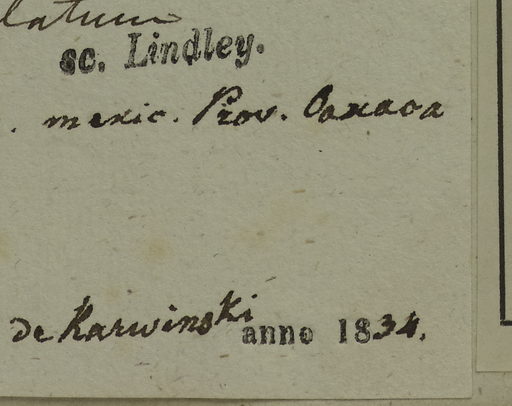 latum
sc. Lindley.
. mexic. Prov. Oaxaca
de Karwinski anno 1834.